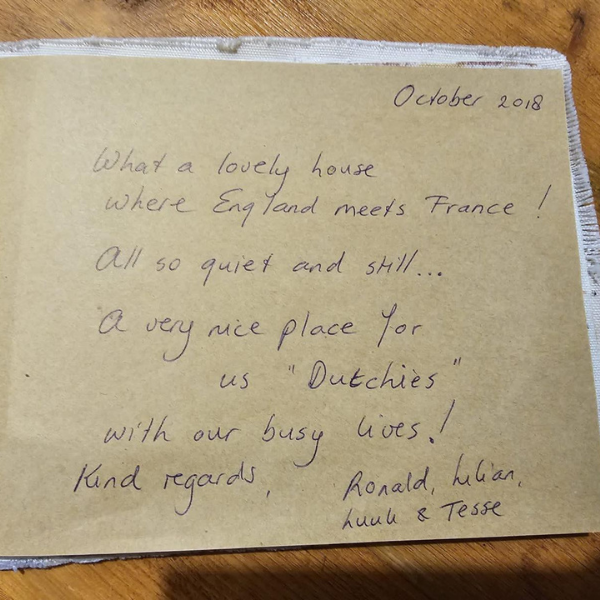 October 2018
What a lovely house
where England meets France !
All so quiet and still...
A very nice place for
us "Dutchies"
with our busy lives!
Kind regards,
Ronald, Lilian,
Luuk & Tesse